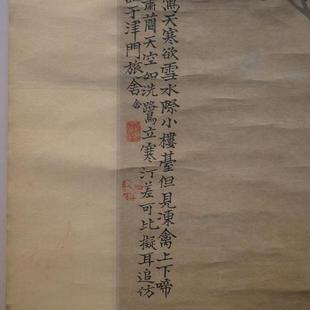 寫天寒欲雪水際小樓臺但見凍禽上下啼
蕭蕳天空如洗鷺立寒汀差可比擬耳追仿
于津門旅舍